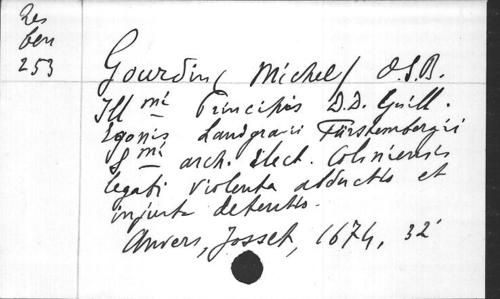 Res
ben
253
Gourdin (Michel) O.S.B.
Ill mi Principis D.D. Guill.
Egonis Landgravi Fürstembergii
S mi arch. Elect. Coloniensis
legati violenta abductio et
injusta detentio.
Anvers, Josset, 1674, 32°